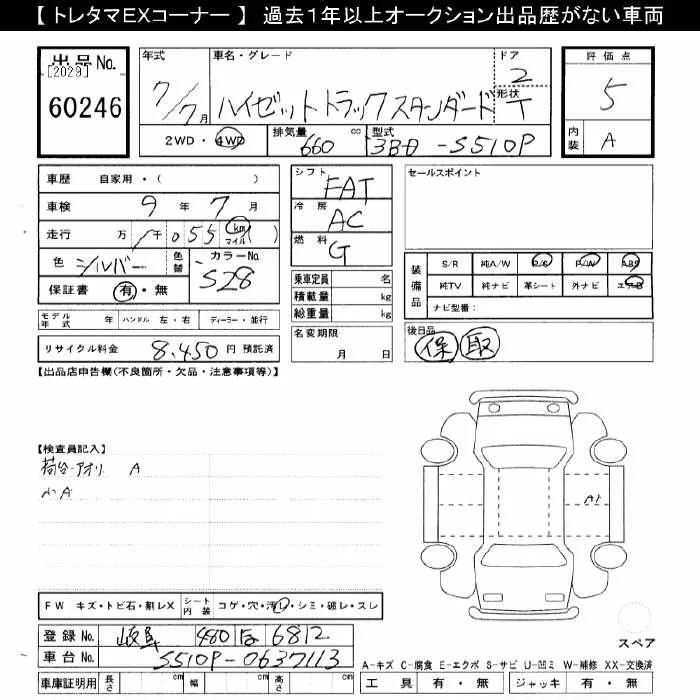 【 トレタマEXコーナー 】 過去1年以上オークション出品歴がない車両
出品No.
[2029]
60246
年式 7/7月
車名・グレード ハイゼットトラックスタンダード
ドア 2
形状 T
2WD・4WD
排気量 660 cc
型式 3BD-S510P
評価点 5
内装 A
車歴 自家用・( )
車検 9 年 7 月
走行 万 1千 055 km マイル
色 シルバー 色替
カラーNo. S28
保証書 有・無
モデル年式 年 ハンドル 左・右 ディーラー・並行
リサイクル料金 8,450 円 預託済
シフト FAT
冷房 AC
燃料 G
乗車定員 名
積載量 kg
総重量 kg
名変期限 月 日
セールスポイント
装備品 S/R 純A/W P/S P/W ABS
純TV 純ナビ 革シート 外ナビ エアB
ナビ型番：
後日品
保 取
【出品店申告欄(不良箇所・欠品・注意事項等)】
【検査員記入】
荷台・アオリ A
小A
A1
FW キズ・トビ石・割レX
シート内装 コゲ・穴・汚レ・シミ・破レ・スレ
登録No. 岐阜 480 な 6812
車台No. S510P-0637113
車庫証明用 長さ cm 幅 cm 高さ cm
スペア
A-キズ C-腐食 E-エクボ S-サビ U-凹ミ W-補修 XX-交換済
工具 有・無 ジャッキ 有・無